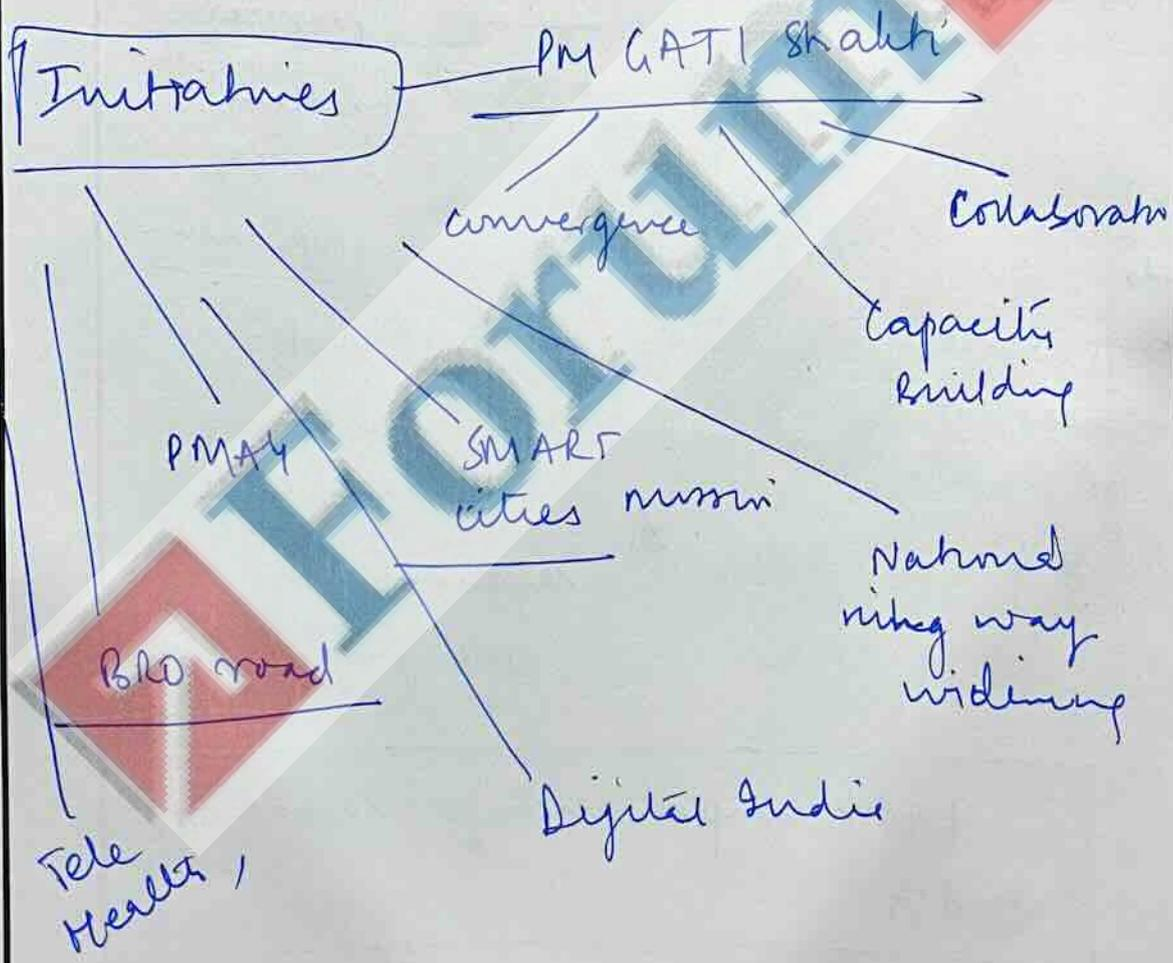 Initiatives
PM GATI Shakti
convergence
Collaborato
Capacity
Building
PMAY
SMART
cities mission
National
highway
widening
BRO road
Digital India
Tele
Health,
Forum